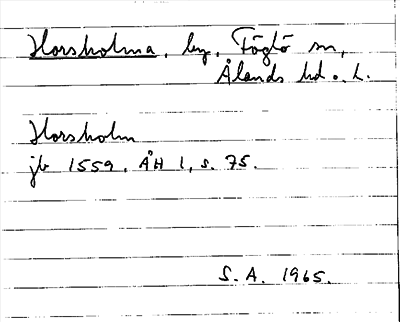 Horsholma, by, Föglö sn,
Ålands hd o. l.
Horsholm
jb 1559. ÅH 1, s. 75.
S. A. 1965.